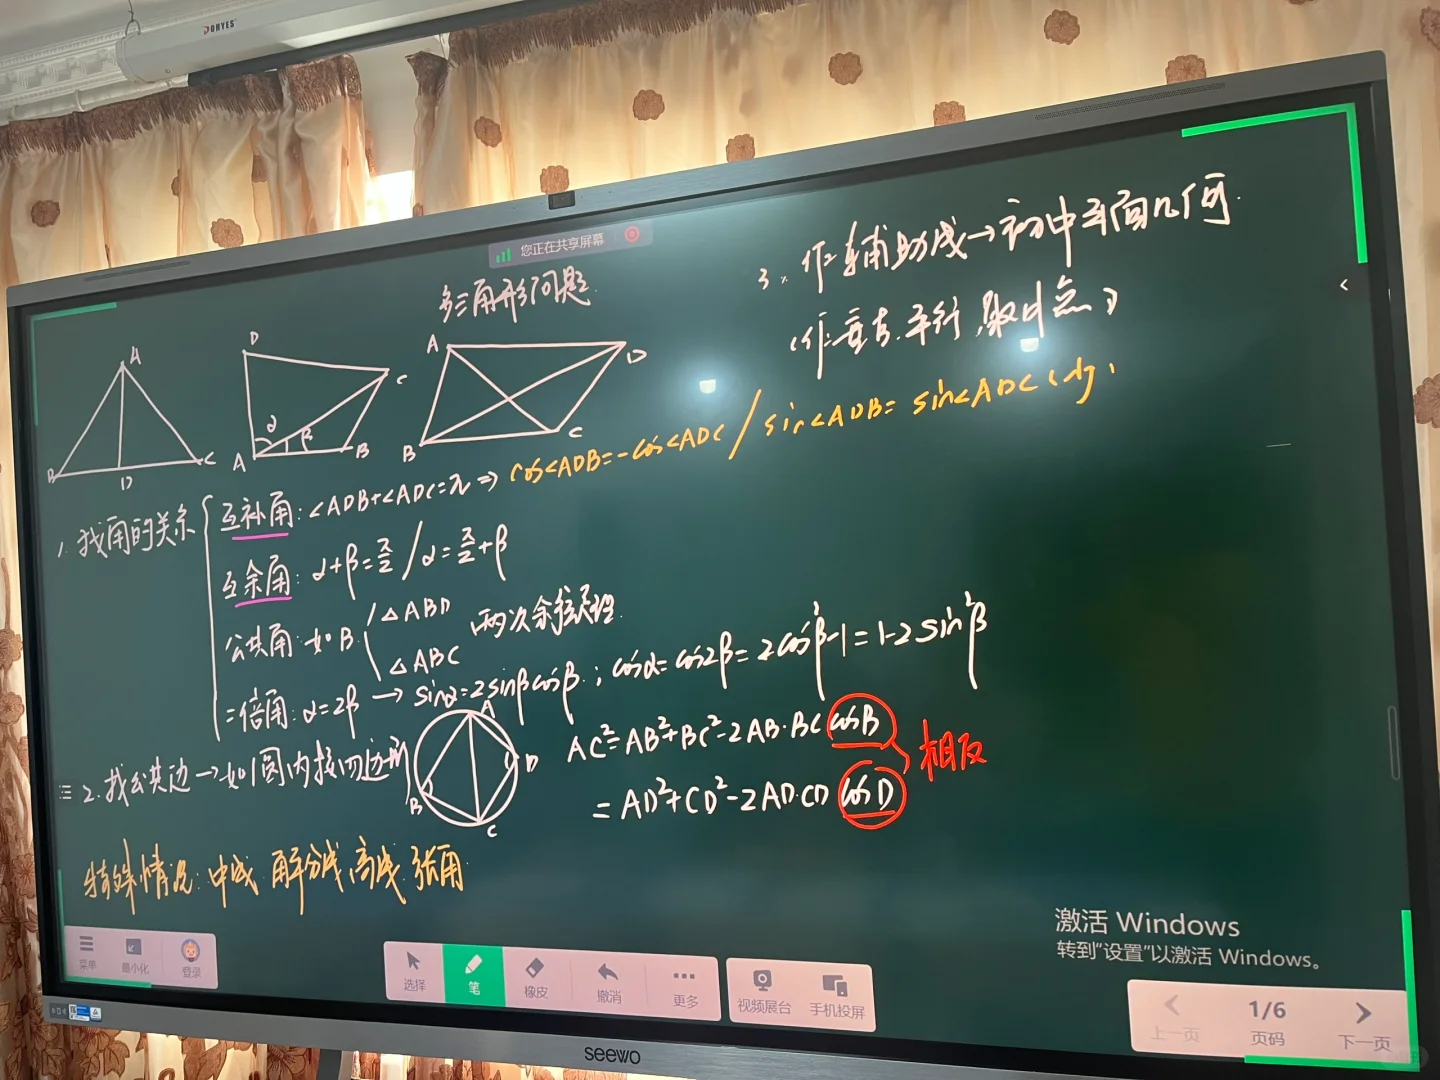 DONYES
您正在共享屏幕
多三角形问题.
A
B
D
C
D
C
α
β
A
B
A
D
B
C
1. 找角的关系
互补角: ∠ADB+∠ADC=π ⇒ cos∠ADB=-cos∠ADC / sin∠ADB= sin∠ADC
互余角: α+β=π/2 / α=π/2+β
公共角: 如B
△ABD
△ABC
两次余弦定理.
二倍角: α=2β → sinα=2sinβcosβ ; cosα=cos2β=2cos²β-1=1-2sin²β
2. 找公共边→如圆内接四边形
A
D
B
C
AC²=AB²+BC²-2AB·BC cosB
=AD²+CD²-2AD·CD cosD
相反
特殊情况: 中线. 角平分线, 高线. 张角
3. 作辅助线→初中平面几何.
(作垂直. 平行, 取中点)
激活 Windows
转到"设置"以激活 Windows。
菜单
最小化
登录
选择
笔
橡皮
撤消
更多
视频展台
手机投屏
上一页
1/6
页码
下一页
seewo